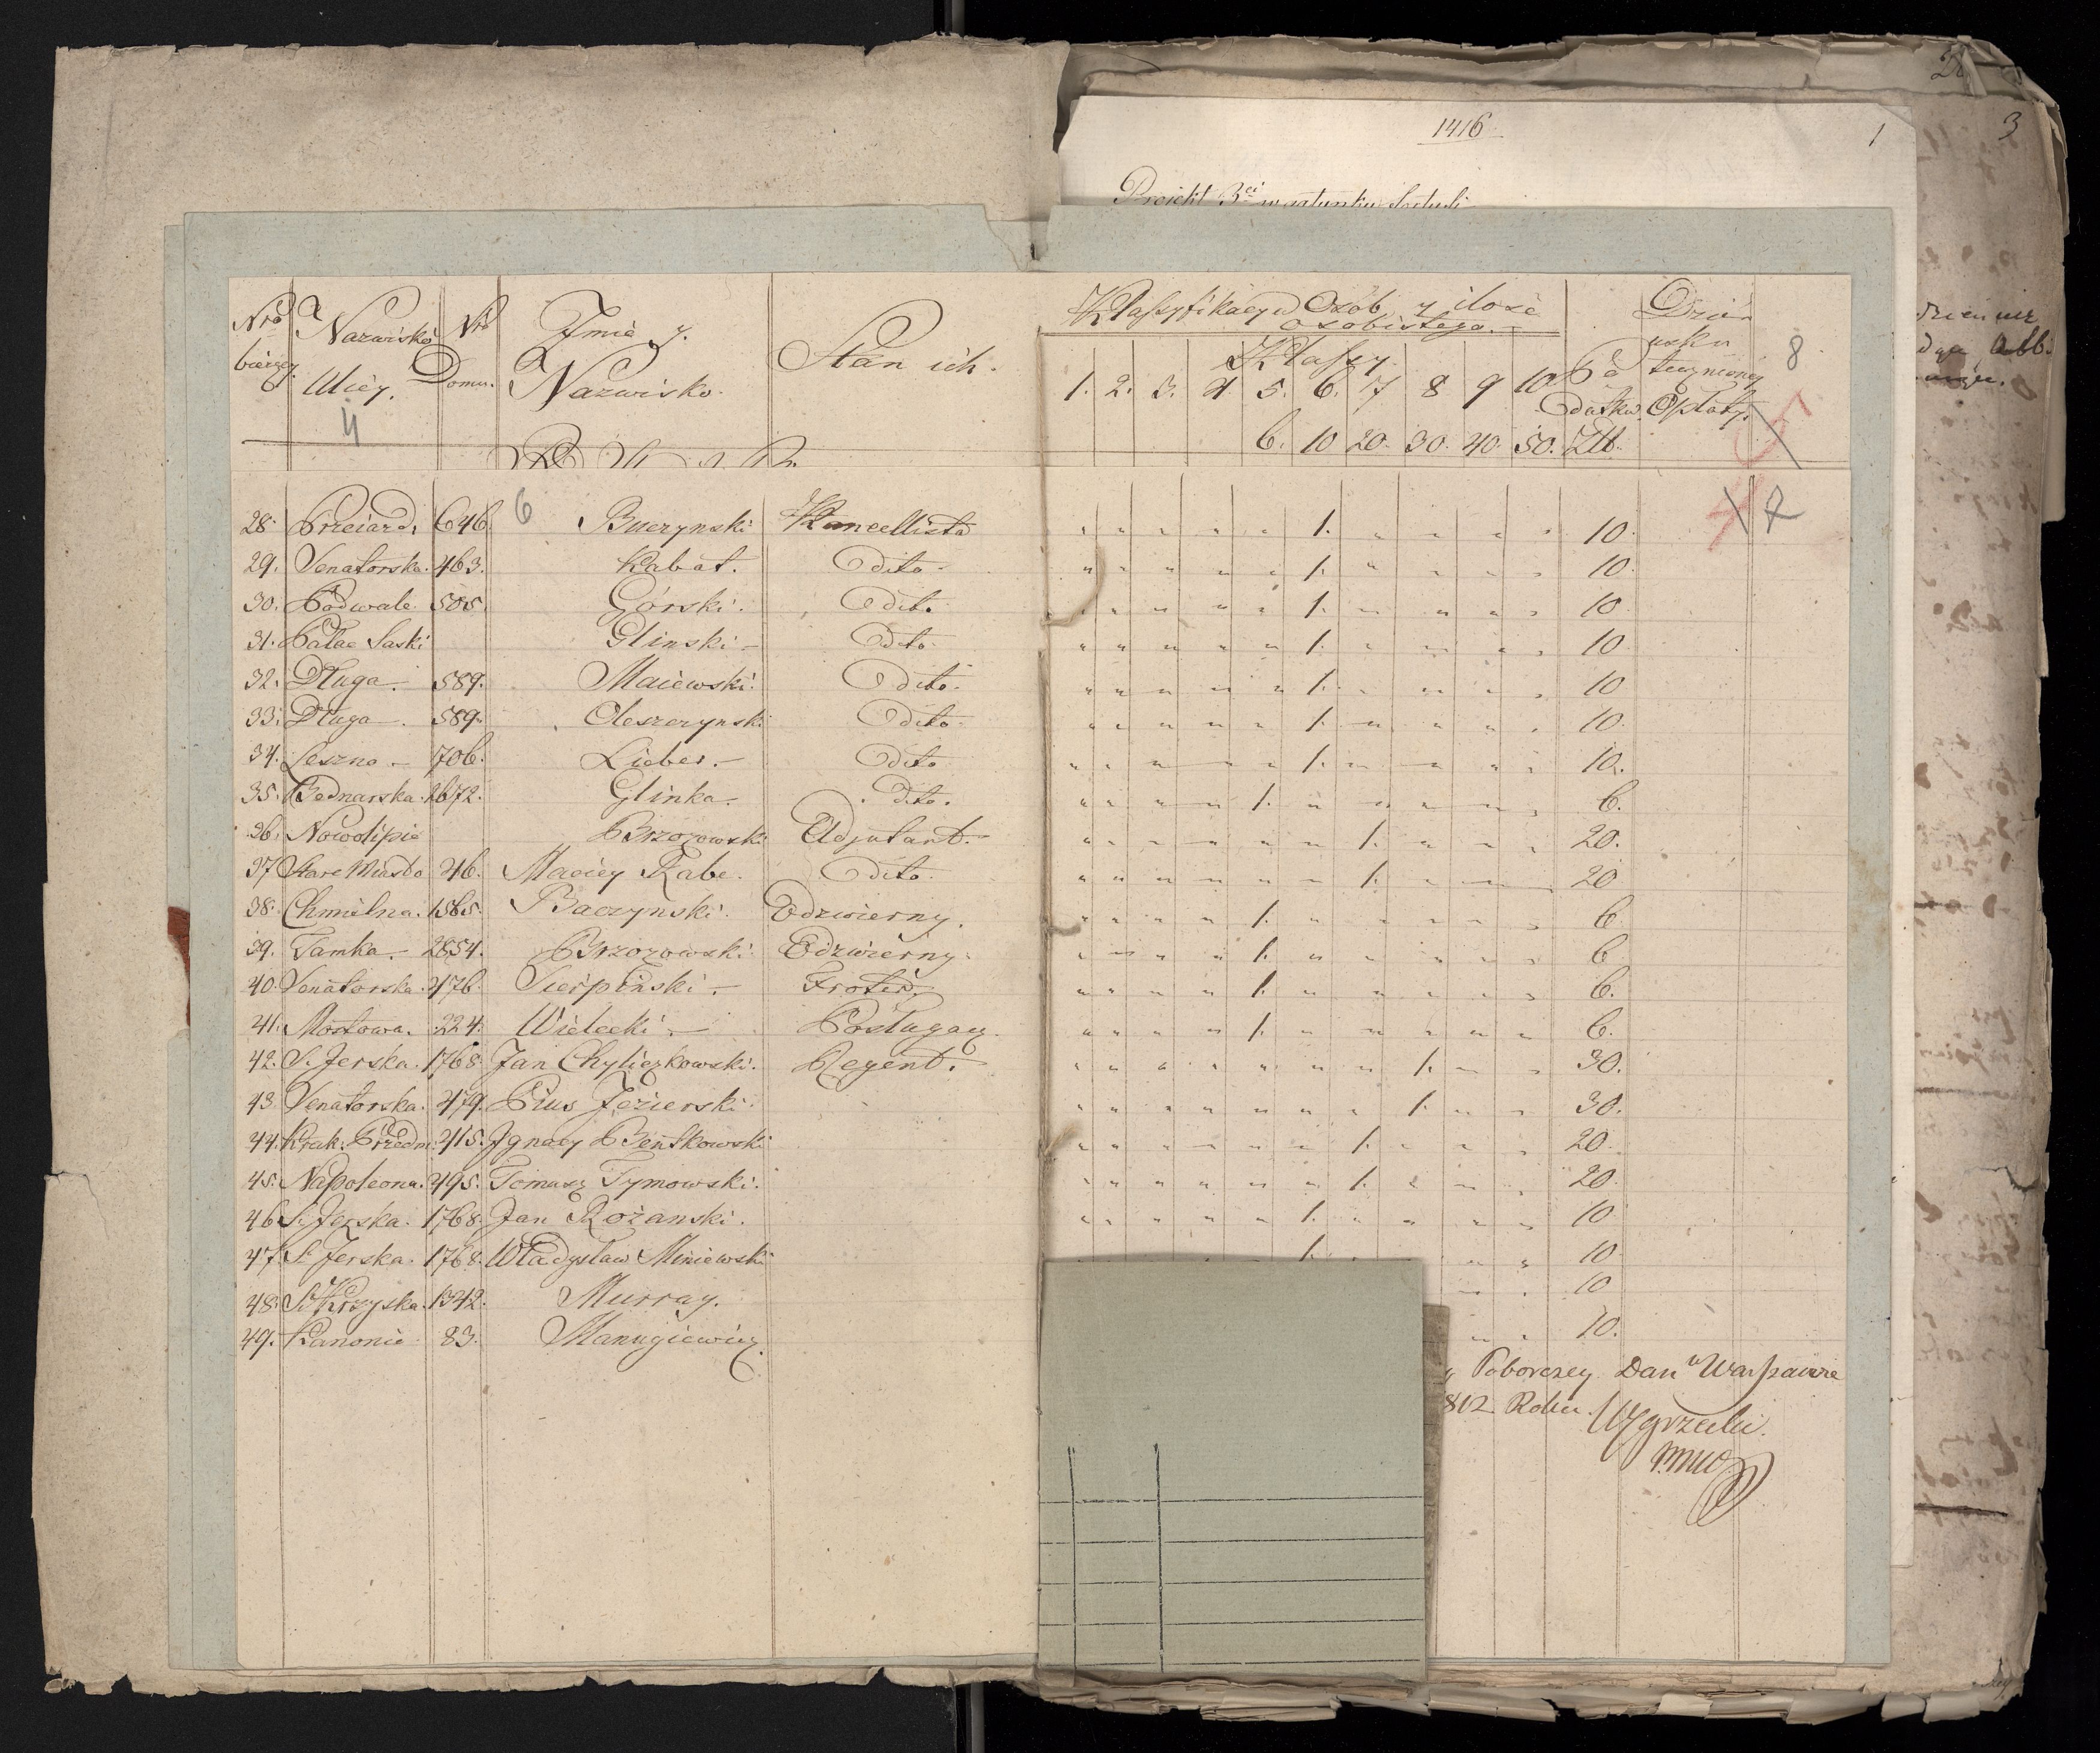 1416
1
3
Nro bierzcy. Nazwisko Ulicy. Nro Domu. Jmie y Nazwisko. Stan ich. Klassyfikacya Osób y ilość osobistego. Dzień
Klassy. uskutecznioney Opłaty. 8
1. 2. 3. 4. 5. 6. 7 8 9 10 Podatku
4 6. 10 20. 30. 40. 50. Złł.
28. 646. 6 Buczynski Kancellista " " " " " 1. " " " " 10. 7
29. Senatorska. 463. Kabat. Dito " " " " " 1. " " " " 10.
30. Podwale 505. Górski. Dito " " " " " 1. " " " " 10
31. Pałac Saski Glinski Dito " " " " " 1. " " " " 10
32. Długa. 589. Maiewski. Dito. " " " " " 1. " " " " 10
33. Długa. 589. Oleszczynski Dito " " " " " 1. " " " " 10.
34. Leszno 706. Lieber. Dito " " " " " 1. " " " " 10.
35. Bednarska. 2672. Glinka. Dito. " " " " 1. " " " " " 6.
36. Nowolipie Brzozowski Adjutant. " " " " " " 1. " " " 20.
37 Stare Miasto 46. Maciey Rabe. Dito. " " " " " " 1. " " " 20
38. Chmielna. 1565. Baczynski. Odzwierny. " " " " 1. " " " " " 6.
39. Tamka. 2854. Brzozowski Odzwierny. " " " " 1. " " " " " 6
40. Senatorska. 476. Sierpinski. Froter. " " " " 1. " " " " " 6.
41. Mostowa. 224. Wielecki. Posługacz. " " " " 1. " " " " " 6.
42. S. Jerska. 1768. Jan Chyliczkowski. Regent. " " " " " " " 1. " " 30.
43. Senatorska. 479. Pius Jezierski " " " " " " " 1. " " 30.
44. Krak. Przedm. 415. Jgnacy Bentkowski " " " " " " 1. " " " 20.
45. Napoleona. 495. Tomasz Tymowski. " " " " " " 1. " " " 20.
46 S. Jerska. 1768. Jan Rożanski. " " " " " 1. " " " " 10
47. S. Jerska. 1768. Władysław Miniewski 1. " " 10
48. S. Krzyska. 1342. Murray. " " 10
49. Kanonie 83. Manugiewicz. " " 10.
Poborczey Dan w Warszawie
812 Roku.